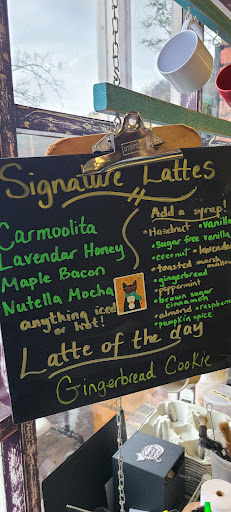 Signature Lattes
Carmoolita
Lavendar Honey
Maple Bacon
Nutella Mocha
anything iced
or hot!
Add a syrup!
• Hazelnut • Vanilla
• Sugar free vanilla
• coconut • lavender
• toasted marsh
mallow
• gingerbread
• peppermint
• brown sugar
cinnamon
• almond • raspberry
• pumpkin spice
Latte of the day
Gingerbread Cookie